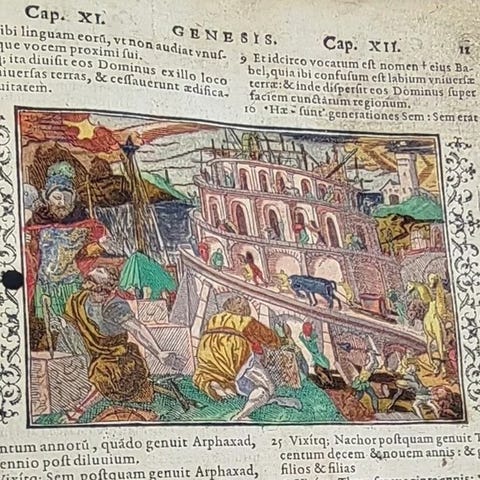 Cap. XI.
GENESIS.
Cap. XII.
11
ibi linguam eorũ, vt non audiat vnus-
que vocem proximi sui.
q; ita diuisit eos Dominus ex illo loco
niuersas terras, & cessauerunt ædifica-
uitatem.
9 Et idcirco vocatum est nomen † eius Ba-
bel, quia ibi confusum est labium vniuersæ
terræ: & inde dispersit eos Dominus super
faciem cunctarum regionum.
10 * Hæ sunt generationes Sem: Sem erat
entum annorũ, quãdo genuit Arphaxad,
ennio post diluuium.
Vixitq; Sem postquam genuit Arphaxad,
25 Vixitq; Nachor postquam genuit T
centum decem & nouem annis: & g
filios & filias